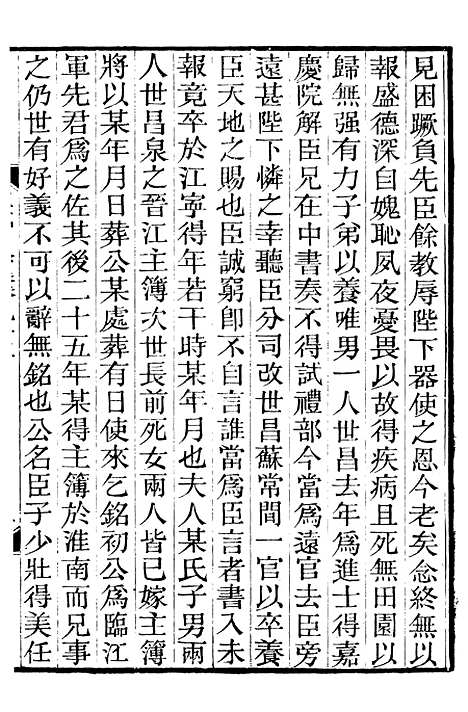 見困蹶負先臣餘教辱陛下器使之恩今老矣念終無以
報盛德深自媿恥夙夜憂畏以故得疾病且死無田園以
歸無强有力子弟以養唯男一人世昌去年爲進士得嘉
慶院解臣兄在中書奏不得試禮部今當爲遠官去臣旁
遠甚陛下憐之幸聽臣分司改世昌蘇常間一官以卒養
臣天地之賜也臣誠窮卽不自言誰當爲臣言者書入未
報竟卒於江寧得年若干時某年月也夫人某氏子男兩
人世昌泉之晉江主簿次世長前死女兩人皆已嫁主簿
將以某年月日葬公某處葬有日使來乞銘初公爲臨江
軍先君爲之佐其後二十五年某得主簿於淮南而兄事
之仍世有好義不可以辭無銘也公名臣子少壯得美任